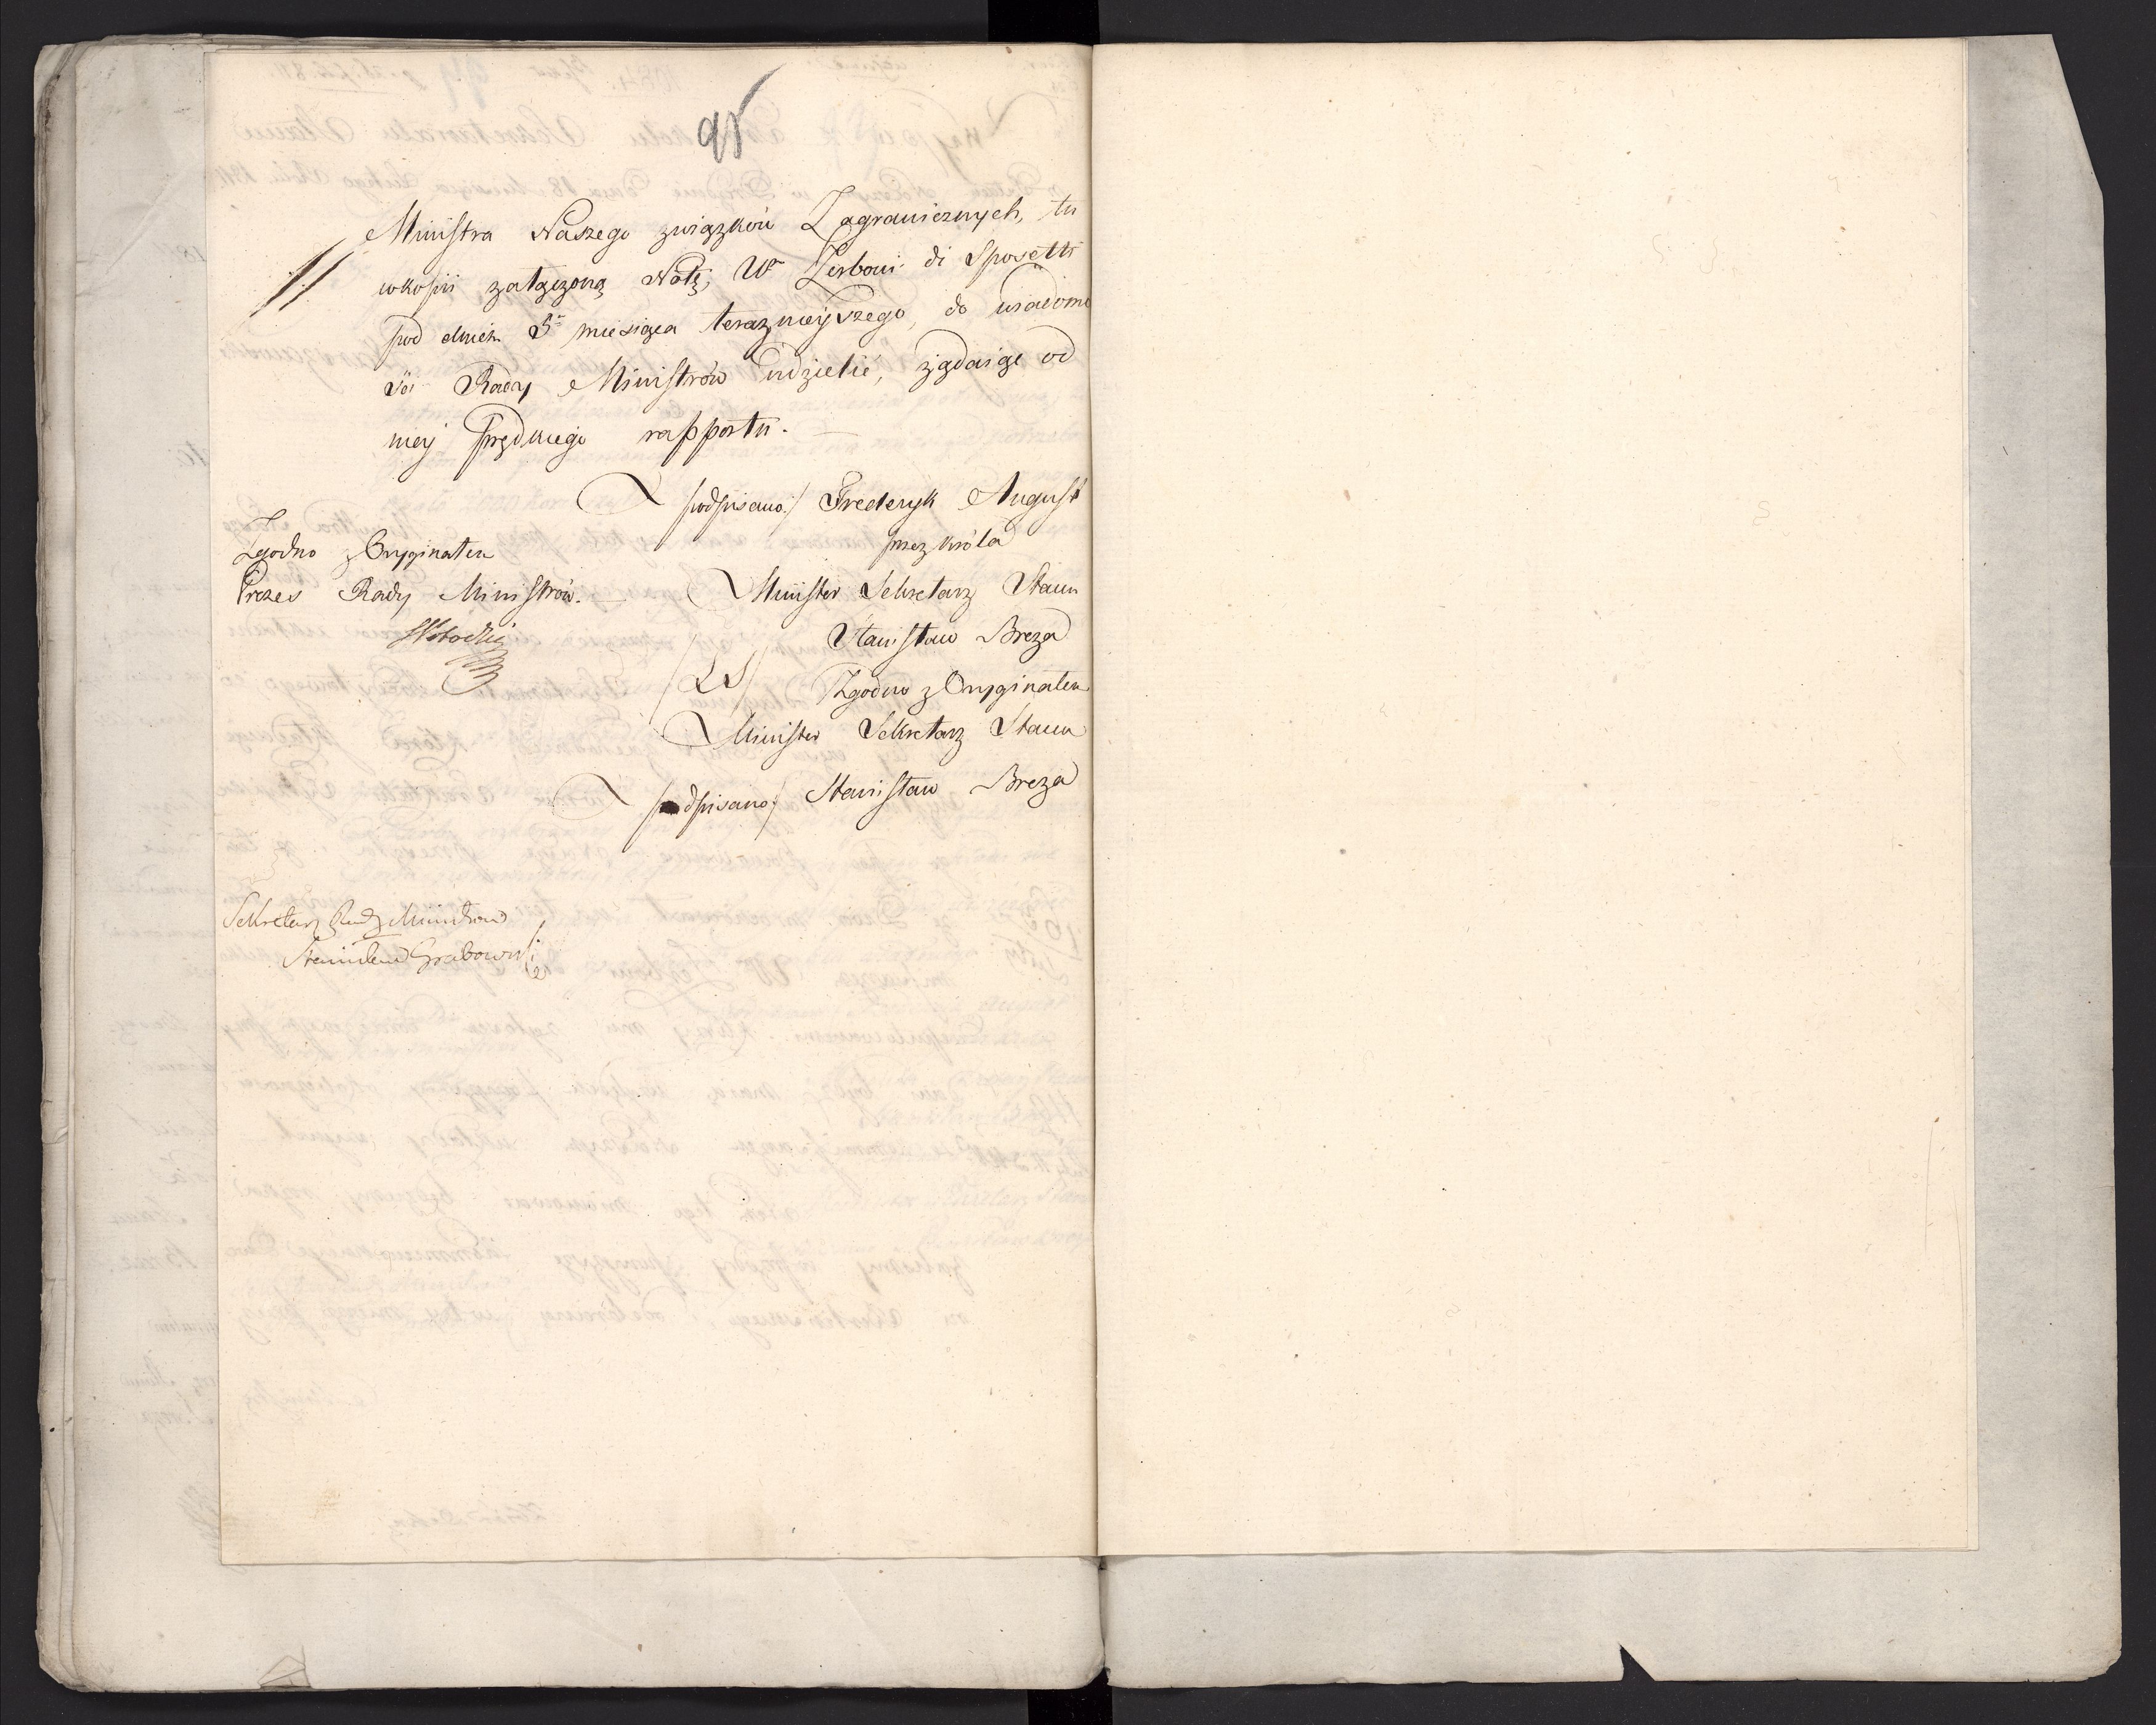 95
Ministra Naszego związków Zagranicznych, tu
w kopii załączoną Notę, Wo Zerboni di Sposetti
pod dniem 5o miesiąca teraznieyszego, do wiadomo
ści Rady Ministrów udzielić, żądaiąc od
niey prędkiego rapportu. —
/podpisano:/ Frederyk August
przez króla
Minister Sekretarz Stanu
Stanisław Breza
/LS/ Zgodno z Oryginałem
Minister Sekretarz Stanu
/podpisano:/ Stanisław Breza
Zgodno z Oryginałem
Prezes Rady Ministrów.
Sekretarz Rady Ministrow
Stanisław Grabowski